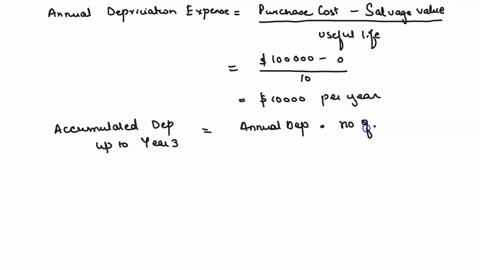 Annual Depriciation Expense = Purchase Cost - Salvage value
useful life
= $100000 - 0
10
= $10000 per year
Accumulated Dep = Annual Dep • no of.
up to Year 3